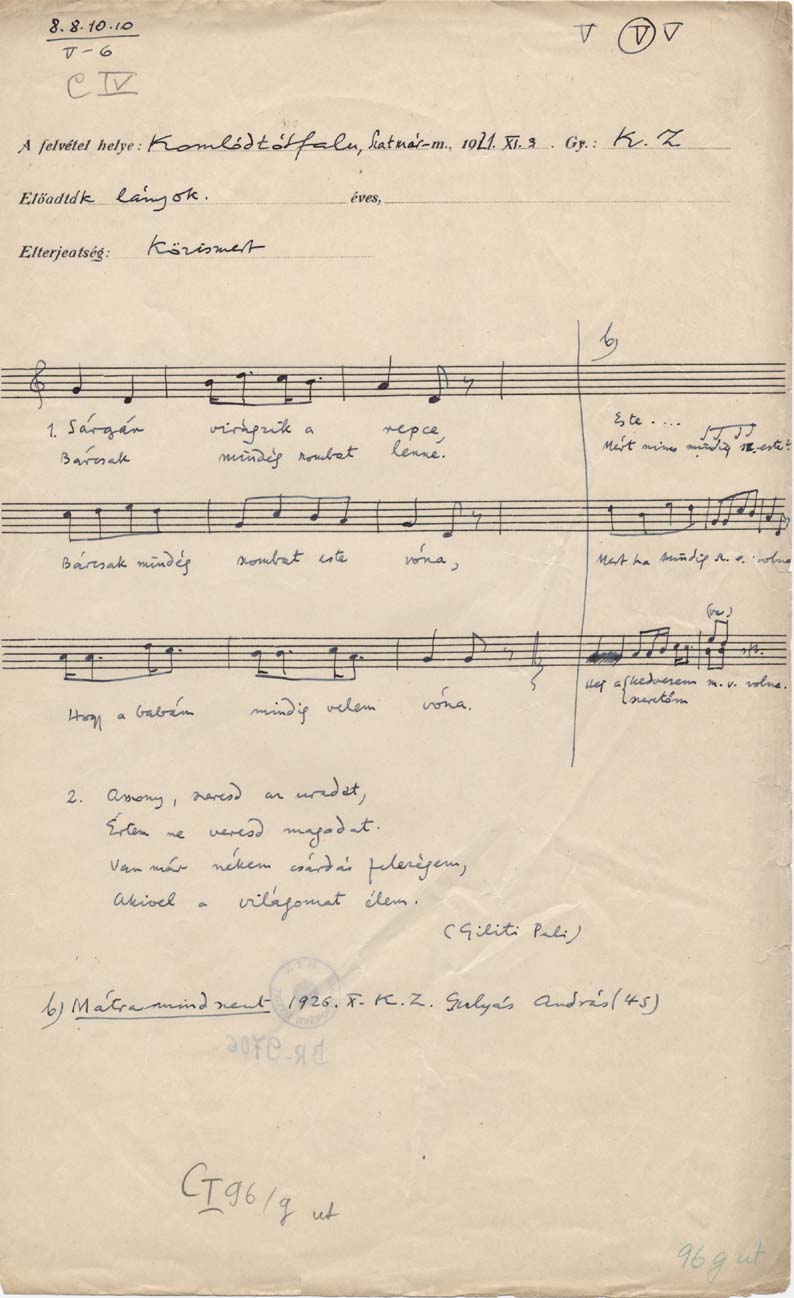 8.8.10.10
V-6
C IV
V V V
A felvétel helye: Komlódtótfalu, Szatmár-m., 1921. XI. 3. Gy.: K. Z
Előadták lányok. éves,
Elterjeatség: Közismert
b)
1. Sárgán virágzik a repce,
Este ....
Bárcsak mindég szombat lenne.
Mért nincs mindig sz. este?
Bárcsak mindég szombat este vóna,
Mert ha mindig sz. e. volna
(var.)
Hogy a babám mindig velem vóna.
Hej a kedvesem m. v. volna.
szeretőm
2. Asszony, szeresd az uradat,
Értem ne veresd magadat.
Van már nékem csárdás feleségem,
Akivel a világomat élem.
(Giliti Pali)
b) Mátramindszent 1926. X. K. Z. Gulyás András (45)
BR-9706
C I 96/g ut
96 g ut